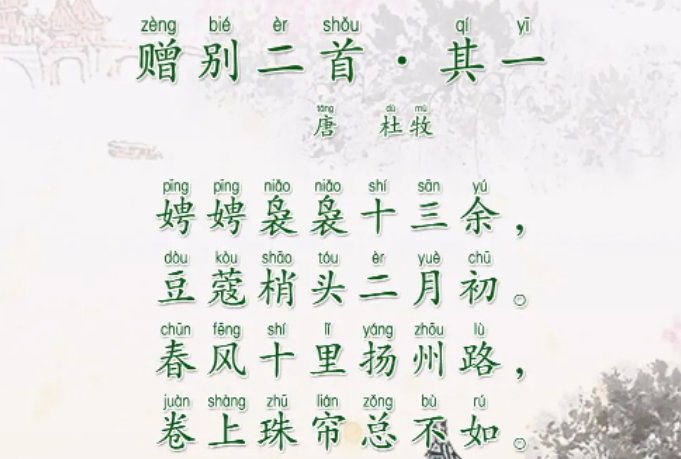 zèng bié èr shǒu qí yī
赠别二首·其一
táng dù mù
唐 杜牧
pīng pīng niǎo niǎo shí sān yú
娉娉袅袅十三余，
dòu kòu shāo tóu èr yuè chū
豆蔻梢头二月初。
chūn fēng shí lǐ yáng zhōu lù
春风十里扬州路，
juàn shàng zhū lián zǒng bù rú
卷上珠帘总不如。